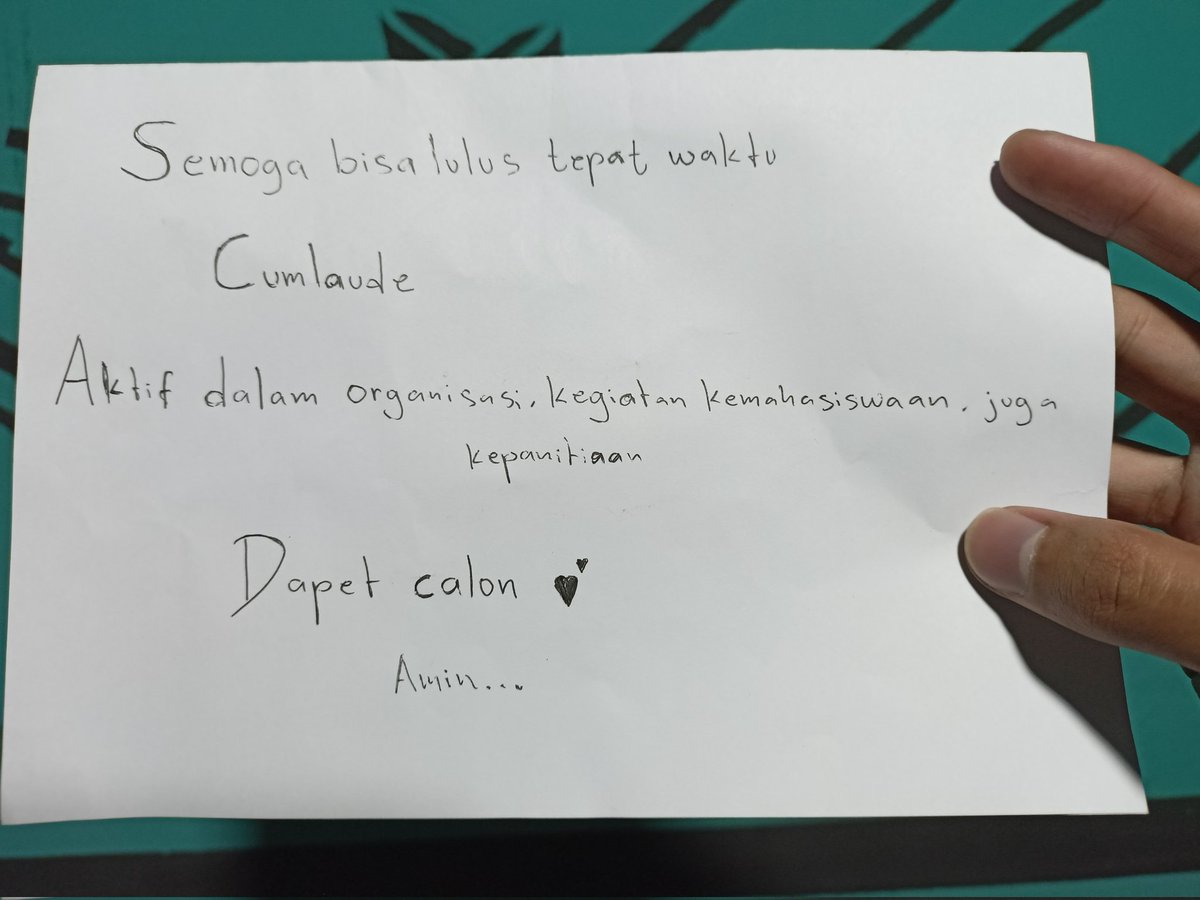 Semoga bisa lulus tepat waktu
Cumlaude
Aktif dalam organisasi, kegiatan kemahasiswaan, juga
kepanitiaan
Dapet calon
Amin...